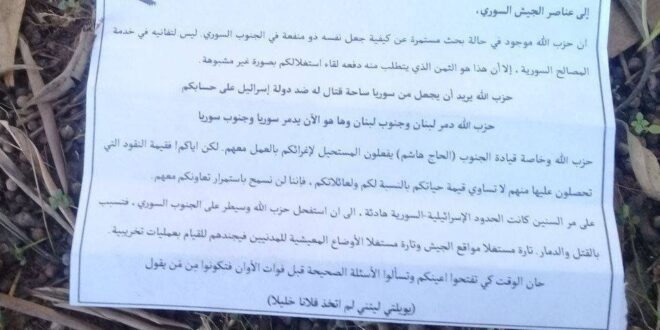 إلى عناصر الجيش السوري.
ان حزب الله موجود في حالة بحث مستمرة عن كيفية جعل نفسه ذو منفعة في الجنوب السوري. ليس لتفانيه في خدمة
المصالح السورية ، إلا أن هذا هو الثمن الذي يتطلب منه دفعه لقاء استغلالكم بصورة غير مشبوهة.
حزب الله يريد أن يجعل من سوريا ساحة قتال له ضد دولة إسرائيل على حسابكم
حزب الله دمر لبنان وجنوب لبنان وها هو الأن يدمر سوريا وجنوب سوريا
حزب الله وخاصة قيادة الجنوب (الحاج هاشم) يفعلون المستحيل لإغرائكم بالعمل معهم. لكن اياكم! فقيمة النقود التي
تحصلون عليها منهم لا تساوي قيمة حياتكم بالنسبة لكم ولعائلاتكم ، فإننا لن نسمح باستمرار تعاونكم معهم.
على مر السنين كانت الحدود الإسرائيلية-السورية هادئة ، الى ان استفحل حزب الله وسيطر على الجنوب السوري ، فتسبب
بالقتل والدمار. تارة مستغلا مواقع الجيش وتارة مستغلا الأوضاع المعيشية للمدنيين فيجندهم للقيام بعمليات تخريبية.
حان الوقت كي تفتحوا اعينكم وتسألوا الأسئلة الصحيحة قبل فوات الأوان فتكونوا مِن مَن يقول
(يويلتي ليتني لم اتخذ فلانا خليلا)